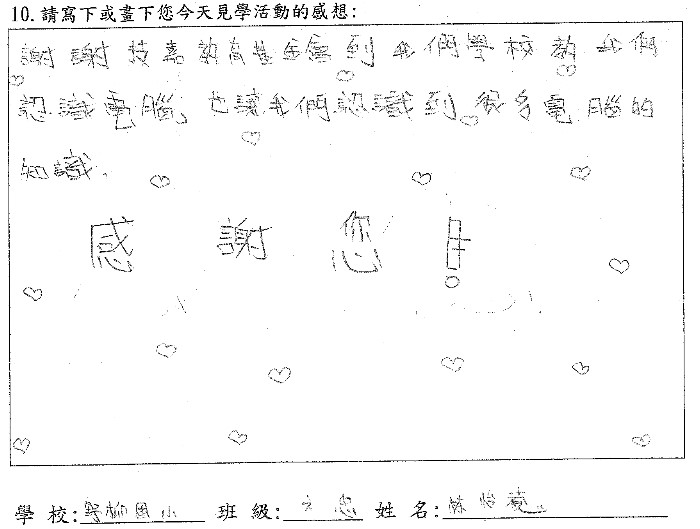 10.請寫下或畫下您今天見學活動的感想:
謝謝技嘉教育基金會到我們學校教我們
認識電腦,也讓我們認識到很多電腦的
知識.
感謝您!
學校:野柳國小 班級:六忠 姓名:怡